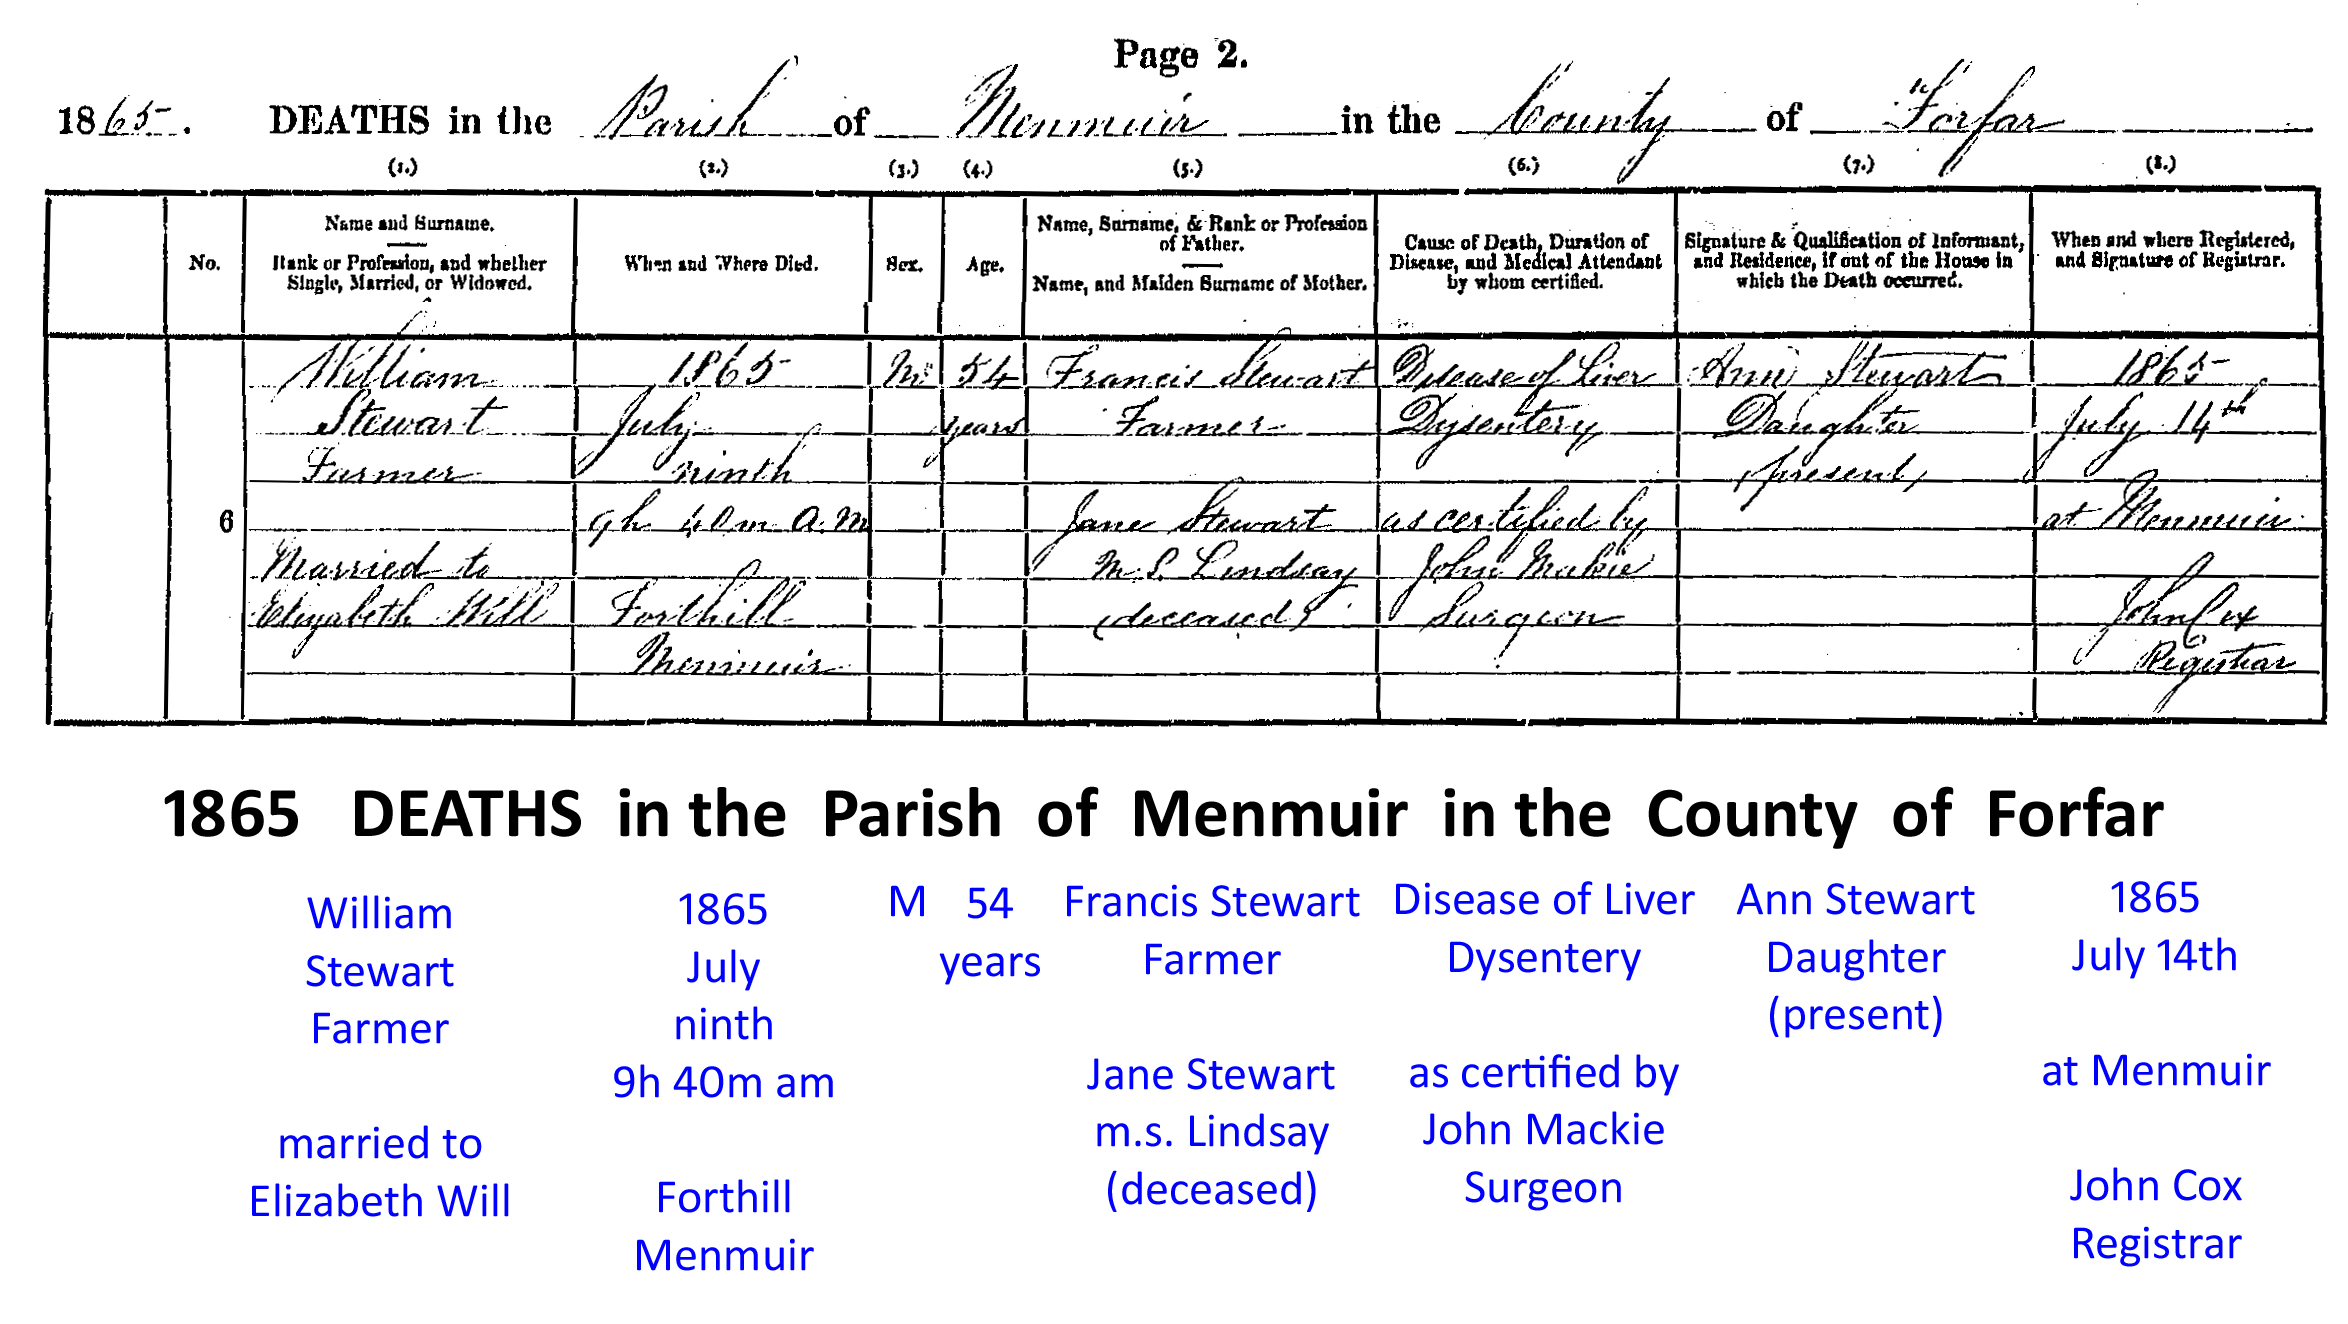 Page 2.
1865. DEATHS in the Parish of Menmuir in the County of Forfar
(1.) (2.) (3.) (4.) (5.) (6.) (7.) (8.)
No.
Name and Surname.
Rank or Profession, and whether
Single, Married, or Widowed.
When and Where Died.
Sex.
Age.
Name, Surname, & Rank or Profession
of Father.
Name, and Maiden Surname of Mother.
Cause of Death, Duration of
Disease, and Medical Attendant
by whom certified.
Signature & Qualification of Informant,
and Residence, if out of the House in
which the Death occurred.
When and where Registered,
and Signature of Registrar.
6
William
Stewart
Farmer
Married to
Elizabeth Will
1865
July
ninth
9h 40m A.M
Forthill
Menmuir
M
54
years
Francis Stewart
Farmer
Jane Stewart
M.S. Lindsay
(deceased)
Disease of Liver
Dysentery
as certified by
John Makie
Surgeon
Ann Stewart
Daughter
(present)
1865
July 14th
at Menmuir
John Cox
Registrar
1865 DEATHS in the Parish of Menmuir in the County of Forfar
William
Stewart
Farmer
married to
Elizabeth Will
1865
July
ninth
9h 40m am
Forthill
Menmuir
M
54
years
Francis Stewart
Farmer
Jane Stewart
m.s. Lindsay
(deceased)
Disease of Liver
Dysentery
as certified by
John Mackie
Surgeon
Ann Stewart
Daughter
(present)
1865
July 14th
at Menmuir
John Cox
Registrar